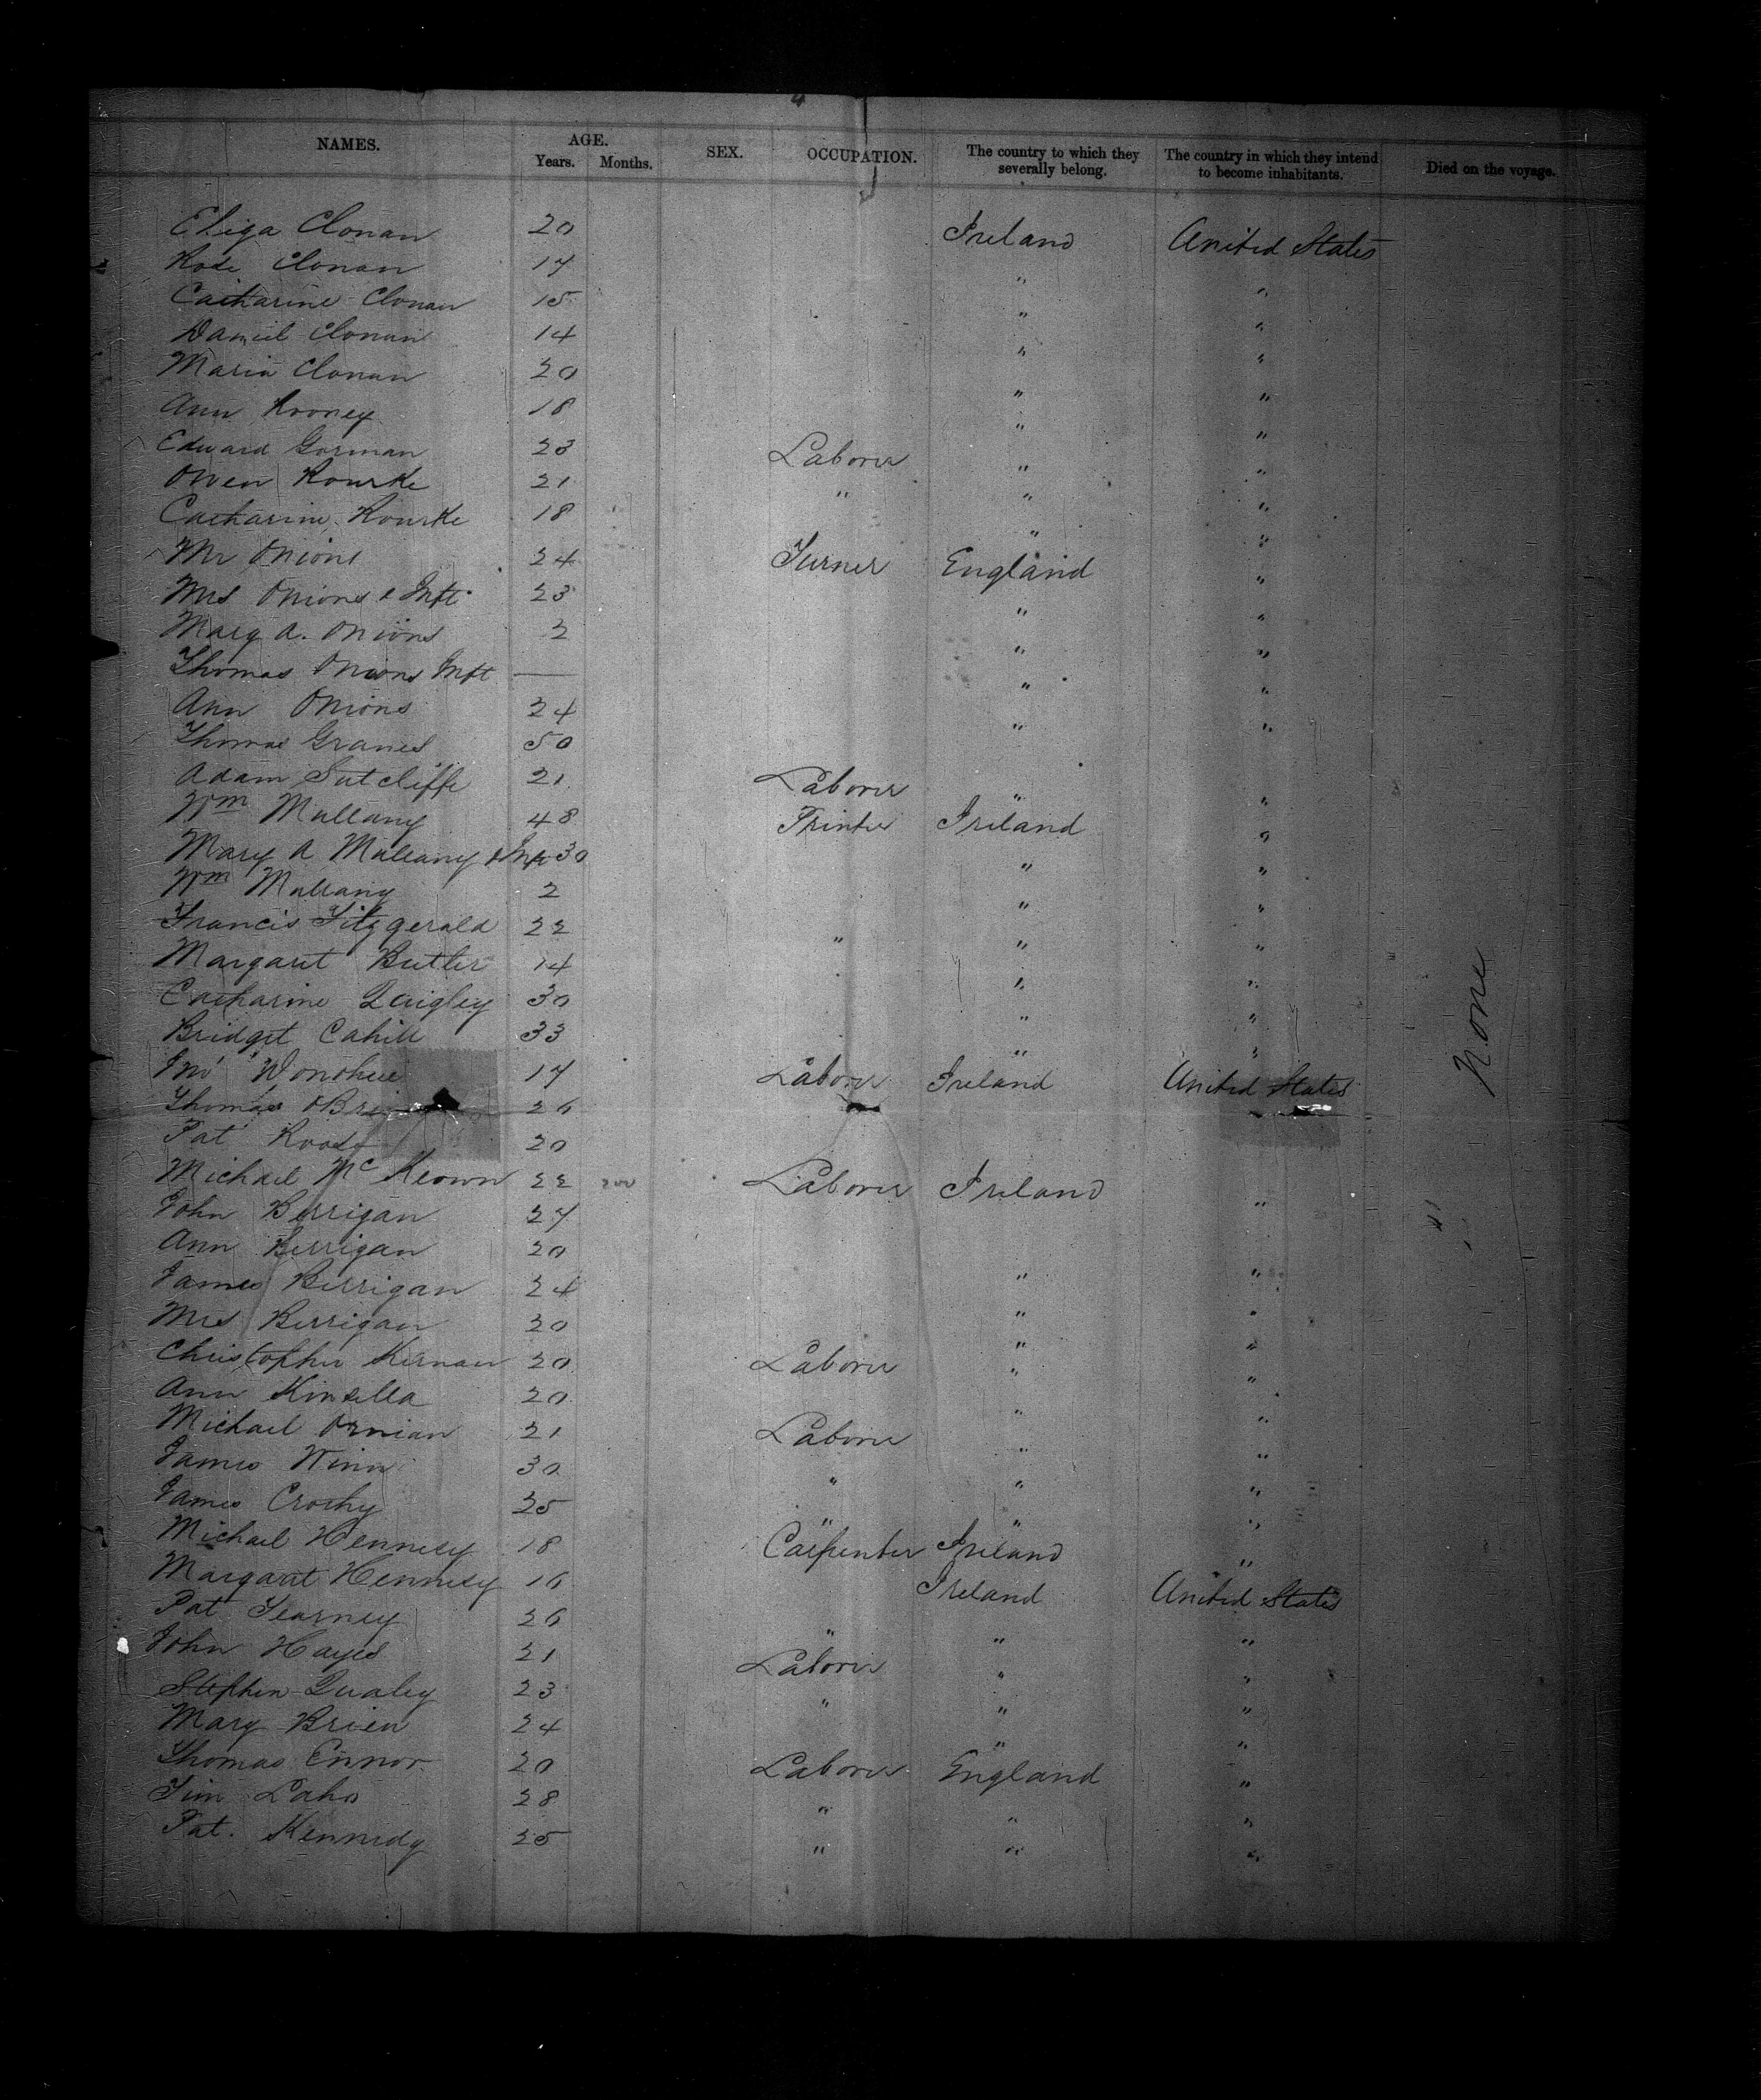 NAMES. AGE. Years. Months. SEX. OCCUPATION. The country to which they severally belong. The country in which they intend to become inhabitants. Died on the voyage.
Eliza Clonan 20 Ireland United States
Rose Clonan 17 " "
Catharine Clonan 15 " "
Daniel Clonan 14 " "
Maria Clonan 20 " "
Ann Rooney 18 " "
Edward Gorman 23 Laborer " "
Owen Rourke 21 " " "
Catharine Rourke 18 " "
Mr Onions 24 Turner England "
Mrs Onions & Inft 23 " "
Mary A. Onions 2 " "
Thomas Onions Inft — " "
Ann Onions 24 " "
Thomas Graves 50
Adam Sutcliffe 21 Laborer " "
Wm Mullany 48 Printer Ireland "
Mary A Mullany & Inft 30 " "
Wm Mullany 2 " "
Francis Fitzgerald 22 " " "
Margaret Butler 14 " "
Catharine Quigley 30 " "
Bridget Cahill 33 " "
Jno Donohue 17 Laborer Ireland United States
Thomas 26
Pat 20
Michael McKeown 22 Laborer Ireland "
John Berrigan 27
Ann Berrigan 20 " "
James Berrigan 24 " "
Mrs Berrigan 20 " "
Christopher Kernan 20 Laborer " "
Ann Kinsella 20 " "
Michael 21 Laborer " "
James Winn 30 " " "
James 25 " " "
Michael Hennesy 18 Carpenter Ireland "
Margaret Hennesy 16 Ireland United States
Pat 26 " " "
John Hayes 21 Laborer " "
Stephen Qualey 23 " " "
Mary Brien 24 " "
Thomas Ennor 20 Laborer England "
Tim 28 " " "
Pat. Kennedy 25 " " "
None